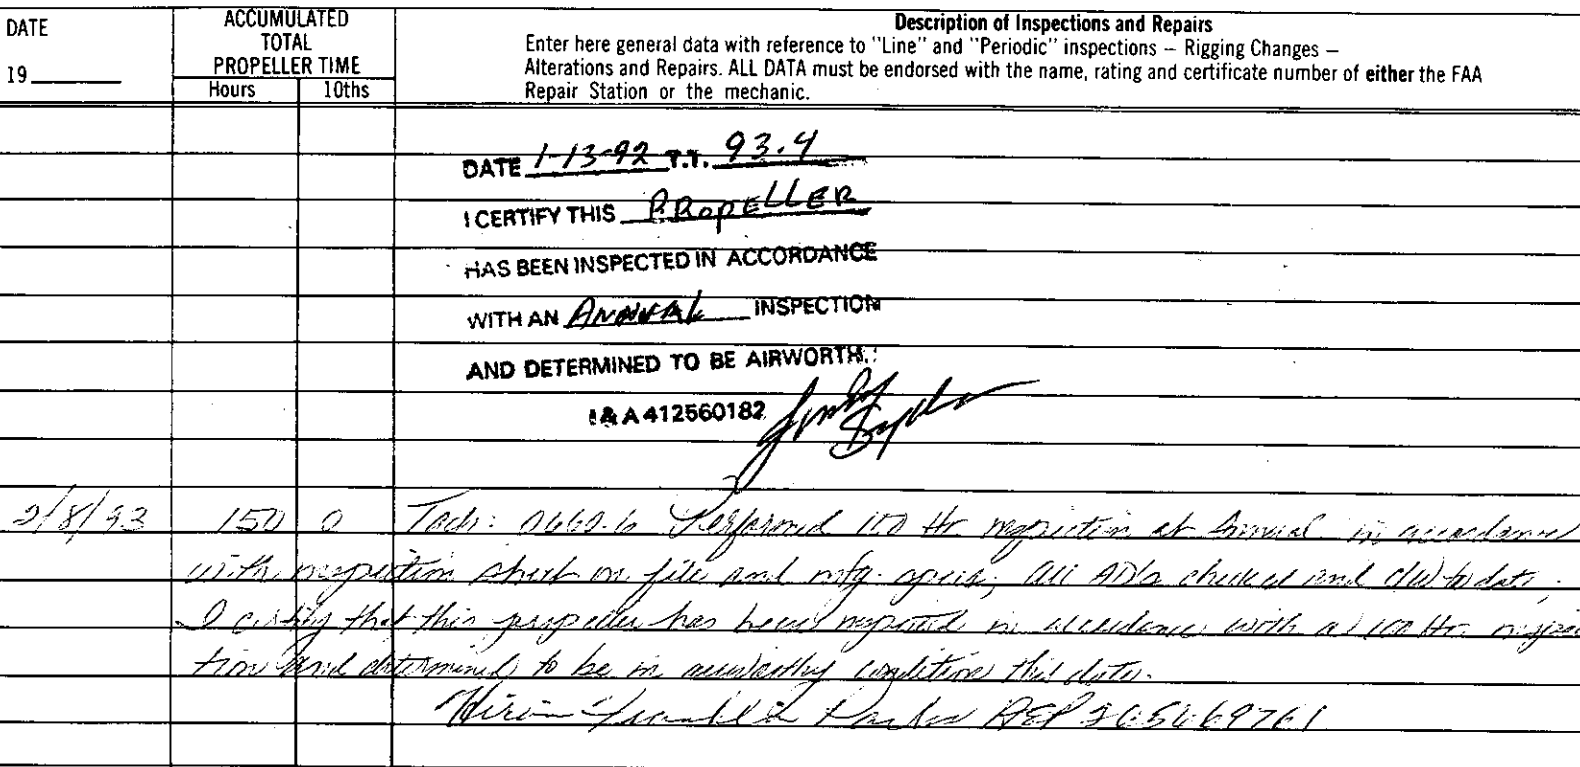 DATE
19
ACCUMULATED
TOTAL
PROPELLER TIME
Hours 10ths
Description of Inspections and Repairs
Enter here general data with reference to "Line" and "Periodic" inspections – Rigging Changes –
Alterations and Repairs. ALL DATA must be endorsed with the name, rating and certificate number of either the FAA
Repair Station or the mechanic.
DATE 1-13-92 T.T. 93.4
I CERTIFY THIS PROPELLER
HAS BEEN INSPECTED IN ACCORDANCE
WITH AN ANNUAL INSPECTION
AND DETERMINED TO BE AIRWORTH
I & A 412560182
2/8/93 150 0 Tach: Performed 100 Hr inspection at Annual in accordance
with inspection sheet on file and mfg. specs, all AD's checked and c/w to date.
I certify that this propeller has been inspected in accordance with a 100 Hr. inspec
tion and determined to be in airworthy condition this date.
Franklin